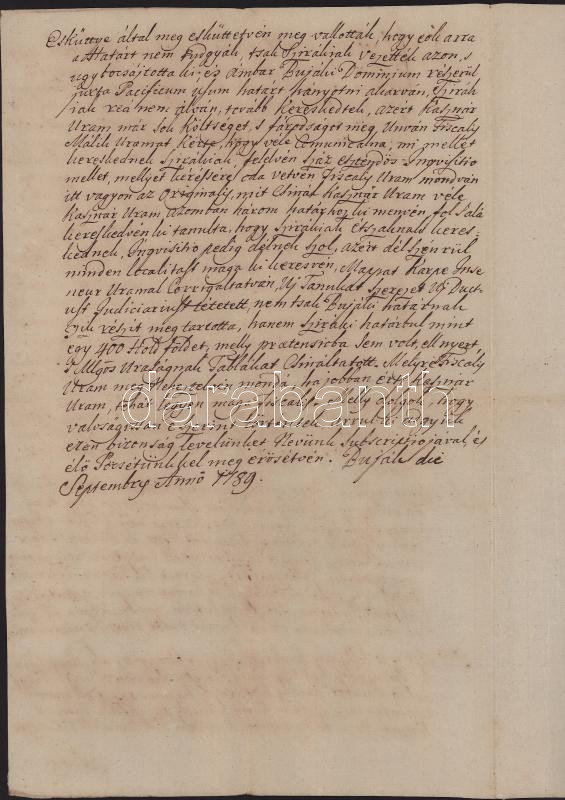 Eskuttye által meg eskuttetvén meg vallották, hogy eök arra
a Határt nem tudgyák, tsak Szirákiak vezették azon, s
ugy borsajtotta ki és ambar Bujáki Dominium részerül
juxta Pacificum usum határt hányotni akarván, Szirák
iak reá nem álván, tovább kereskedtek, azért Kasznár
Uram már sok Költséget, s fáradságot meg Unván Fiscaly
Uramat Kérte, hogy véle Comunicalna, mi mellet
kereskednek Szirákiak, felelvén száz esztendős Ingvisitio
mellet, mellyet kérésére oda vetvén Fiscaly Uram mondván
itt vagyon az Originaly, mit Csinál Kasznár Uram véle
Kasznár Uram azomban három határhoz ki menvén, fel
kereskedvén ki tanulta, hogy Szirákiak északnak keres=
kednek, Ingvisitio pedig délnek szol, azért délszén rül
minden localitast maga ki keresvén, Mappát Karpe Inse
neur Uramal Corrigaltatván, Uj Tanukat szerzet Uj Duct
ust Judiciariust tétetett, nem tsak Bujáki határnak
részit meg tartotta, hanem Sziráki határbul mint
egy 400 Hold földet, melly praetensioba sem volt, el nyert
s Mlgos Uraságnak Táblákat Csináltatott. Melyre Fiscaly
Uram meg mondá, ha jobban érti Kasznár
Uram, tehát legyen maga Fiscalis. Melly dolgok, hogy
valoságossan e szerént történtek arrul
ezen bizonság Levelünket Nevünk Subscriptiojával, és
élő Petsétünkkel meg erősétvén. Buják die
Septembrys Anno 1789.
darabanth